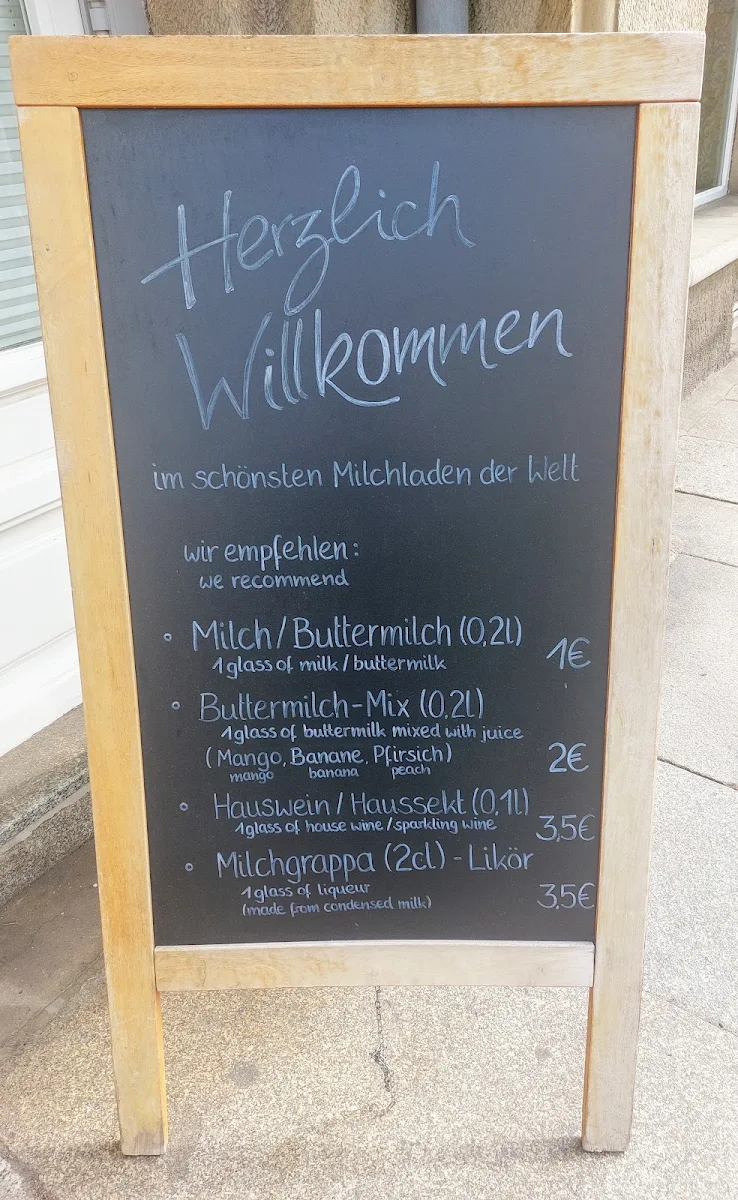 Herzlich
Willkommen
im schönsten Milchladen der Welt
wir empfehlen:
we recommend
◦ Milch/Buttermilch (0,2l) 1€
1 glass of milk / buttermilk
◦ Buttermilch-Mix (0,2l)
1 glass of buttermilk mixed with juice
(Mango, Banane, Pfirsich) 2€
mango banana peach
◦ Hauswein/Haussekt (0,1l) 3,5€
1 glass of house wine / sparkling wine
◦ Milchgrappa (2cl) - Likör
1 glass of liqueur 3,5€
(made from condensed milk)